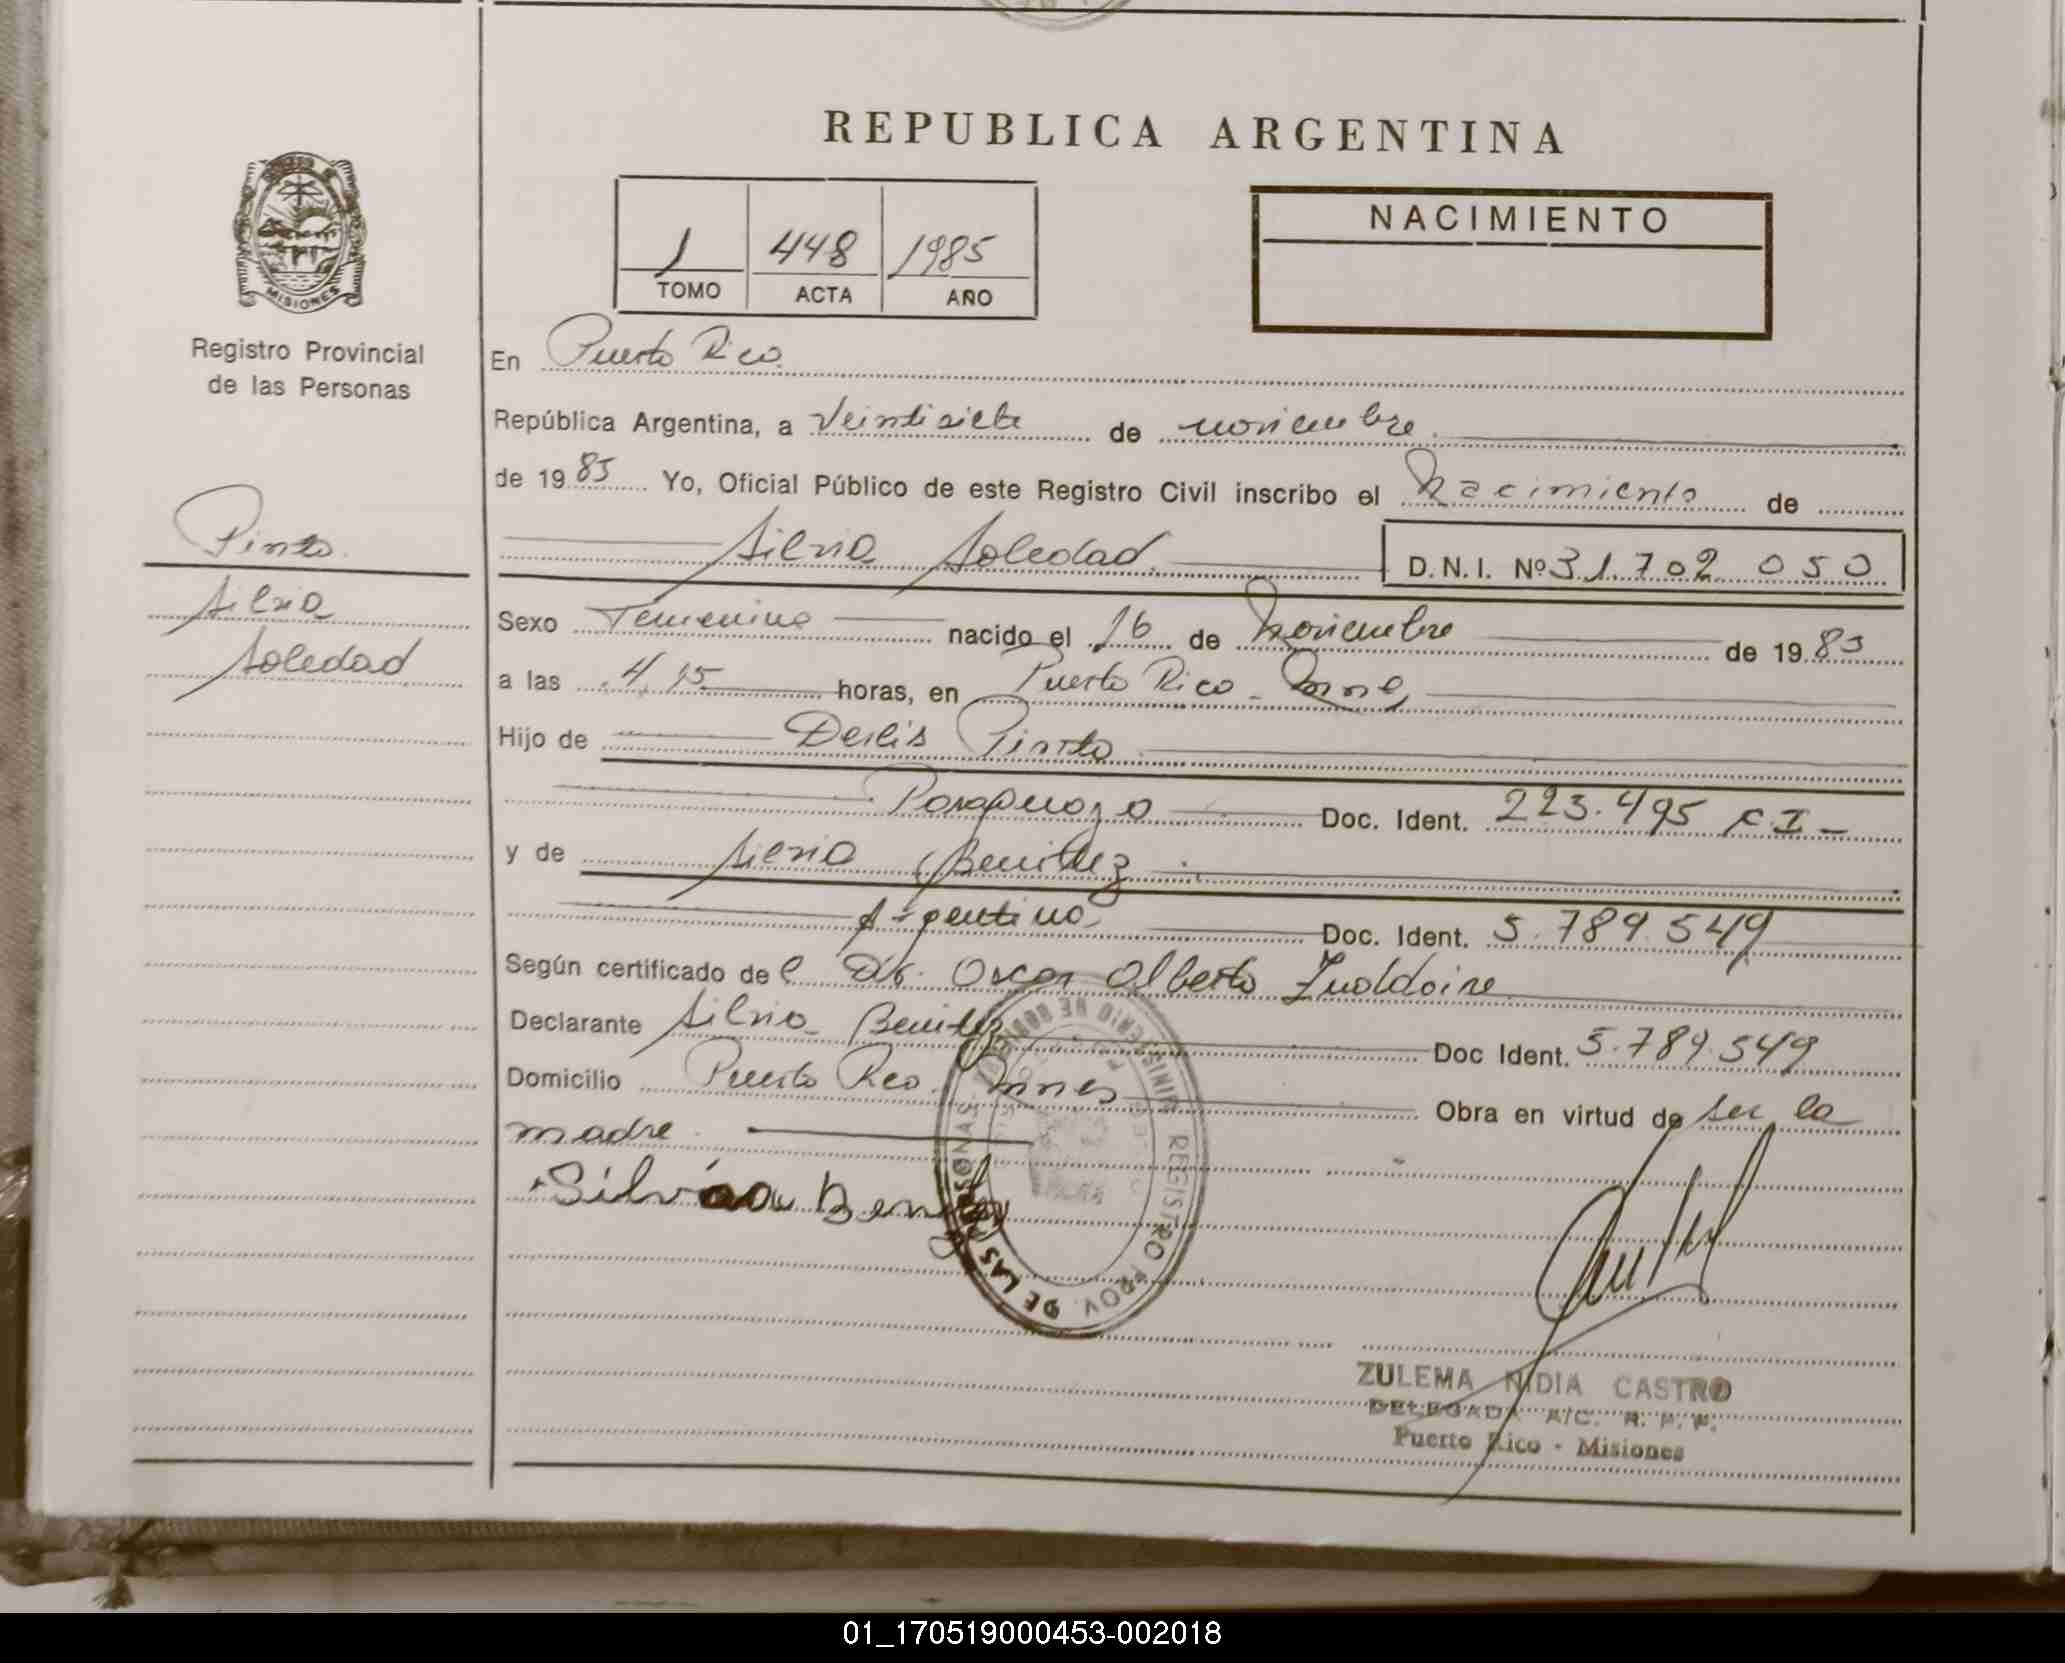 REPUBLICA ARGENTINA
MISIONES
Registro Provincial
de las Personas
1 448 1985
TOMO ACTA AÑO
NACIMIENTO
En Puerto Rico
República Argentina, a veintisiete de noviembre
de 1985 Yo, Oficial Público de este Registro Civil inscribo el nacimiento de
Silvia Soledad
D.N.I. Nº 31.702 050
Pinto
Silvia
Soledad
Sexo Femenino nacido el 16 de noviembre de 1985
a las 4,15 horas, en Puerto Rico - Mnes
Hijo de Derlis Pinto
Paraguayo Doc. Ident. 223.495 C I -
y de Silvia Benitez
Argentina Doc. Ident. 5.789.549
Según certificado del Dr. Oscar Alberto
Declarante Silvia Benitez Doc Ident. 5.789.549
Domicilio Puerto Rico. Mnes Obra en virtud de ser la
madre.
Silvia Benitez
MINISTERIO DE GOBIERNO
REGISTRO PROV. DE LAS PERSONAS
ZULEMA NIDIA CASTRO
DELEGADA A/C. R. P. P.
Puerto Rico - Misiones
01_170519000453-002018